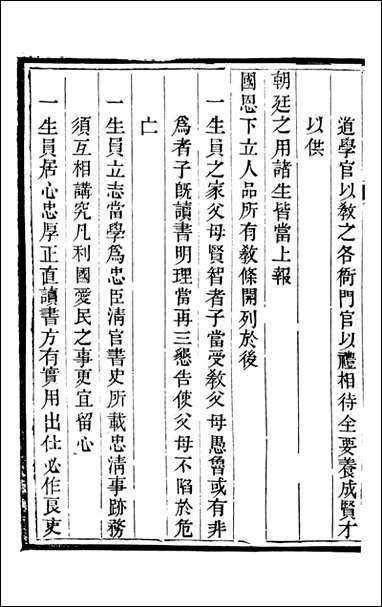 道學官以教之各衙門官以禮相待全要養成賢才
以供
朝廷之用諸生皆當上報
國恩下立人品所有教條開列於後
一生員之家父母賢智者子當受教父母愚魯或有非
爲者子旣讀書明理當再三懇告使父母不陷於危
亡
一生員立志當學爲忠臣清官書史所載忠清事跡務
須互相講究凡利國愛民之事更宜留心
一生員居心忠厚正直讀書方有實用出仕必作良吏